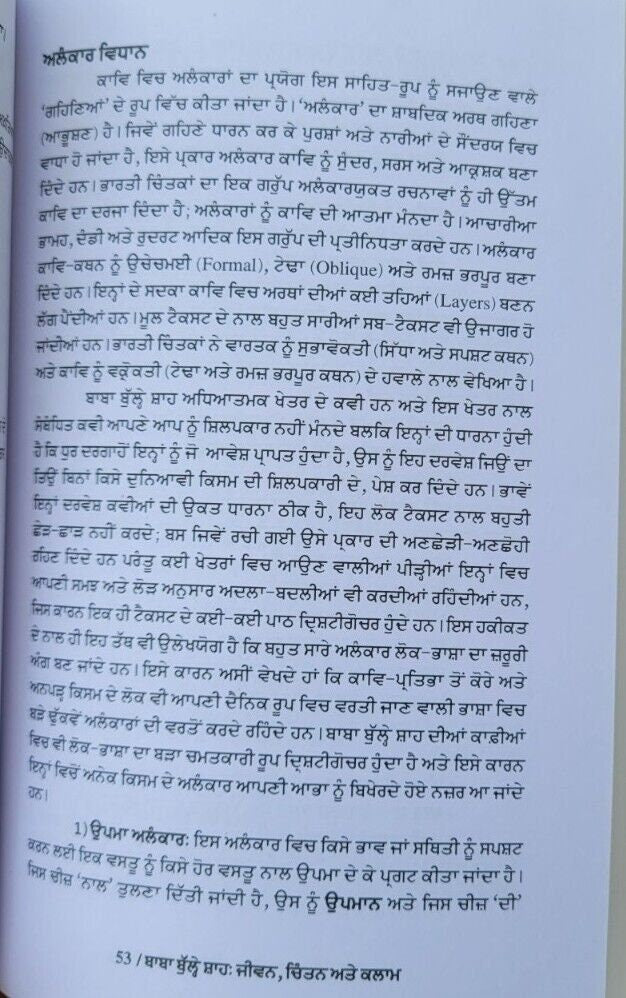 ਅਲੰਕਾਰ ਵਿਧਾਨ
ਕਾਵਿ ਵਿਚ ਅਲੰਕਾਰਾਂ ਦਾ ਪ੍ਰਯੋਗ ਇਸ ਸਾਹਿਤ-ਰੂਪ ਨੂੰ ਸਜਾਉਣ ਵਾਲੇ
‘ਗਹਿਣਿਆਂ’ ਦੇ ਰੂਪ ਵਿੱਚ ਕੀਤਾ ਜਾਂਦਾ ਹੈ। ‘ਅਲੰਕਾਰ’ ਦਾ ਸ਼ਾਬਦਿਕ ਅਰਥ ਗਹਿਣਾ
(ਆਭੂਸ਼ਣ) ਹੈ। ਜਿਵੇਂ ਗਹਿਣੇ ਧਾਰਨ ਕਰ ਕੇ ਪੁਰਸ਼ਾਂ ਅਤੇ ਨਾਰੀਆਂ ਦੇ ਸੌਂਦਰਯ ਵਿਚ
ਵਾਧਾ ਹੋ ਜਾਂਦਾ ਹੈ, ਇਸੇ ਪ੍ਰਕਾਰ ਅਲੰਕਾਰ ਕਾਵਿ ਨੂੰ ਸੁੰਦਰ, ਸਰਸ ਅਤੇ ਆਕ੍ਰਸ਼ਕ ਬਣਾ
ਦਿੰਦੇ ਹਨ। ਭਾਰਤੀ ਚਿੰਤਕਾਂ ਦਾ ਇਕ ਗਰੁੱਪ ਅਲੰਕਾਰਯੁਕਤ ਰਚਨਾਵਾਂ ਨੂੰ ਹੀ ਉੱਤਮ
ਕਾਵਿ ਦਾ ਦਰਜਾ ਦਿੰਦਾ ਹੈ; ਅਲੰਕਾਰਾਂ ਨੂੰ ਕਾਵਿ ਦੀ ਆਤਮਾ ਮੰਨਦਾ ਹੈ। ਆਚਾਰੀਆ
ਭਾਮਹ, ਦੰਡੀ ਅਤੇ ਰੁਦਰਟ ਆਦਿਕ ਇਸ ਗਰੁੱਪ ਦੀ ਪ੍ਰਤੀਨਿਧਤਾ ਕਰਦੇ ਹਨ। ਅਲੰਕਾਰ
ਕਾਵਿ-ਕਥਨ ਨੂੰ ਉਚੇਚਮਈ (Formal), ਟੇਢਾ (Oblique) ਅਤੇ ਰਮਜ਼ ਭਰਪੂਰ ਬਣਾ
ਦਿੰਦੇ ਹਨ। ਇਨ੍ਹਾਂ ਦੇ ਸਦਕਾ ਕਾਵਿ ਵਿਚ ਅਰਥਾਂ ਦੀਆਂ ਕਈ ਤਹਿਆਂ (Layers) ਬਣਨ
ਲੱਗ ਪੈਂਦੀਆਂ ਹਨ। ਮੂਲ ਟੈਕਸਟ ਦੇ ਨਾਲ ਬਹੁਤ ਸਾਰੀਆਂ ਸਬ-ਟੈਕਸਟ ਵੀ ਉਜਾਗਰ ਹੋ
ਜਾਂਦੀਆਂ ਹਨ। ਭਾਰਤੀ ਚਿੰਤਕਾਂ ਨੇ ਵਾਰਤਕ ਨੂੰ ਸੁਭਾਵੋਕਤੀ (ਸਿੱਧਾ ਅਤੇ ਸਪਸ਼ਟ ਕਥਨ)
ਅਤੇ ਕਾਵਿ ਨੂੰ ਵਕ੍ਰੋਕਤੀ (ਟੇਢਾ ਅਤੇ ਰਮਜ਼ ਭਰਪੂਰ ਕਥਨ) ਦੇ ਹਵਾਲੇ ਨਾਲ ਵੇਖਿਆ ਹੈ।
ਬਾਬਾ ਬੁੱਲ੍ਹੇ ਸ਼ਾਹ ਅਧਿਆਤਮਕ ਖੇਤਰ ਦੇ ਕਵੀ ਹਨ ਅਤੇ ਇਸ ਖੇਤਰ ਨਾਲ
ਸੰਬੰਧਿਤ ਕਵੀ ਆਪਣੇ ਆਪ ਨੂੰ ਸ਼ਿਲਪਕਾਰ ਨਹੀਂ ਮੰਨਦੇ ਬਲਕਿ ਇਨ੍ਹਾਂ ਦੀ ਧਾਰਨਾ ਹੁੰਦੀ
ਹੈ ਕਿ ਧੁਰ ਦਰਗਾਹੋਂ ਇਨ੍ਹਾਂ ਨੂੰ ਜੋ ਆਵੇਸ਼ ਪ੍ਰਾਪਤ ਹੁੰਦਾ ਹੈ, ਉਸ ਨੂੰ ਇਹ ਦਰਵੇਸ਼ ਜਿਉਂ ਦਾ
ਤਿਉਂ ਬਿਨਾਂ ਕਿਸੇ ਦੁਨਿਆਵੀ ਕਿਸਮ ਦੀ ਸ਼ਿਲਪਕਾਰੀ ਦੇ, ਪੇਸ਼ ਕਰ ਦਿੰਦੇ ਹਨ। ਭਾਵੇਂ
ਇਨ੍ਹਾਂ ਦਰਵੇਸ਼ ਕਵੀਆਂ ਦੀ ਉਕਤ ਧਾਰਨਾ ਠੀਕ ਹੈ, ਇਹ ਲੋਕ ਟੈਕਸਟ ਨਾਲ ਬਹੁਤੀ
ਛੇੜ-ਛਾੜ ਨਹੀਂ ਕਰਦੇ; ਬਸ ਜਿਵੇਂ ਰਚੀ ਗਈ ਉਸੇ ਪ੍ਰਕਾਰ ਦੀ ਅਣਛੇੜੀ-ਅਣਛੋਹੀ
ਰਹਿਣ ਦਿੰਦੇ ਹਨ ਪਰੰਤੂ ਕਈ ਖੇਤਰਾਂ ਵਿਚ ਆਉਣ ਵਾਲੀਆਂ ਪੀੜ੍ਹੀਆਂ ਇਨ੍ਹਾਂ ਵਿਚ
ਆਪਣੀ ਸਮਝ ਅਤੇ ਲੋੜ ਅਨੁਸਾਰ ਅਦਲਾ-ਬਦਲੀਆਂ ਵੀ ਕਰਦੀਆਂ ਰਹਿੰਦੀਆਂ ਹਨ,
ਜਿਸ ਕਾਰਨ ਇਕ ਹੀ ਟੈਕਸਟ ਦੇ ਕਈ-ਕਈ ਪਾਠ ਦ੍ਰਿਸ਼ਟੀਗੋਚਰ ਹੁੰਦੇ ਹਨ। ਇਸ ਹਕੀਕਤ
ਦੇ ਨਾਲ ਹੀ ਇਹ ਤੱਥ ਵੀ ਉਲੇਖਯੋਗ ਹੈ ਕਿ ਬਹੁਤ ਸਾਰੇ ਅਲੰਕਾਰ ਲੋਕ-ਭਾਸ਼ਾ ਦਾ ਜ਼ਰੂਰੀ
ਅੰਗ ਬਣ ਜਾਂਦੇ ਹਨ। ਇਸੇ ਕਾਰਨ ਅਸੀਂ ਵੇਖਦੇ ਹਾਂ ਕਿ ਕਾਵਿ-ਪ੍ਰਤਿਭਾ ਤੋਂ ਕੋਰੇ ਅਤੇ
ਅਨਪੜ੍ਹ ਕਿਸਮ ਦੇ ਲੋਕ ਵੀ ਆਪਣੀ ਦੈਨਿਕ ਰੂਪ ਵਿਚ ਵਰਤੀ ਜਾਣ ਵਾਲੀ ਭਾਸ਼ਾ ਵਿਚ
ਬੜੇ ਢੁੱਕਵੇਂ ਅਲੰਕਾਰਾਂ ਦੀ ਵਰਤੋਂ ਕਰਦੇ ਰਹਿੰਦੇ ਹਨ। ਬਾਬਾ ਬੁੱਲ੍ਹੇ ਸ਼ਾਹ ਦੀਆਂ ਕਾਫ਼ੀਆਂ
ਵਿਚ ਵੀ ਲੋਕ-ਭਾਸ਼ਾ ਦਾ ਬੜਾ ਚਮਤਕਾਰੀ ਰੂਪ ਦ੍ਰਿਸ਼ਟੀਗੋਚਰ ਹੁੰਦਾ ਹੈ ਅਤੇ ਇਸੇ ਕਾਰਨ
ਇਨ੍ਹਾਂ ਵਿਚੋਂ ਅਨੇਕ ਕਿਸਮ ਦੇ ਅਲੰਕਾਰ ਆਪਣੀ ਆਭਾ ਨੂੰ ਬਿਖੇਰਦੇ ਹੋਏ ਨਜ਼ਰ ਆ ਜਾਂਦੇ
ਹਨ।
1) ਉਪਮਾ ਅਲੰਕਾਰ: ਇਸ ਅਲੰਕਾਰ ਵਿਚ ਕਿਸੇ ਭਾਵ ਜਾਂ ਸਥਿਤੀ ਨੂੰ ਸਪਸ਼ਟ
ਕਰਨ ਲਈ ਇਕ ਵਸਤੂ ਨੂੰ ਕਿਸੇ ਹੋਰ ਵਸਤੂ ਨਾਲ ਉਪਮਾ ਦੇ ਕੇ ਪ੍ਰਗਟ ਕੀਤਾ ਜਾਂਦਾ ਹੈ।
ਜਿਸ ਚੀਜ਼ ‘ਨਾਲ’ ਤੁਲਣਾ ਦਿੱਤੀ ਜਾਂਦੀ ਹੈ, ਉਸ ਨੂੰ ਉਪਮਾਨ ਅਤੇ ਜਿਸ ਚੀਜ਼ ‘ਦੀ’
53 / ਬਾਬਾ ਬੁੱਲ੍ਹੇ ਸ਼ਾਹ: ਜੀਵਨ, ਚਿੰਤਨ ਅਤੇ ਕਲਾਮ